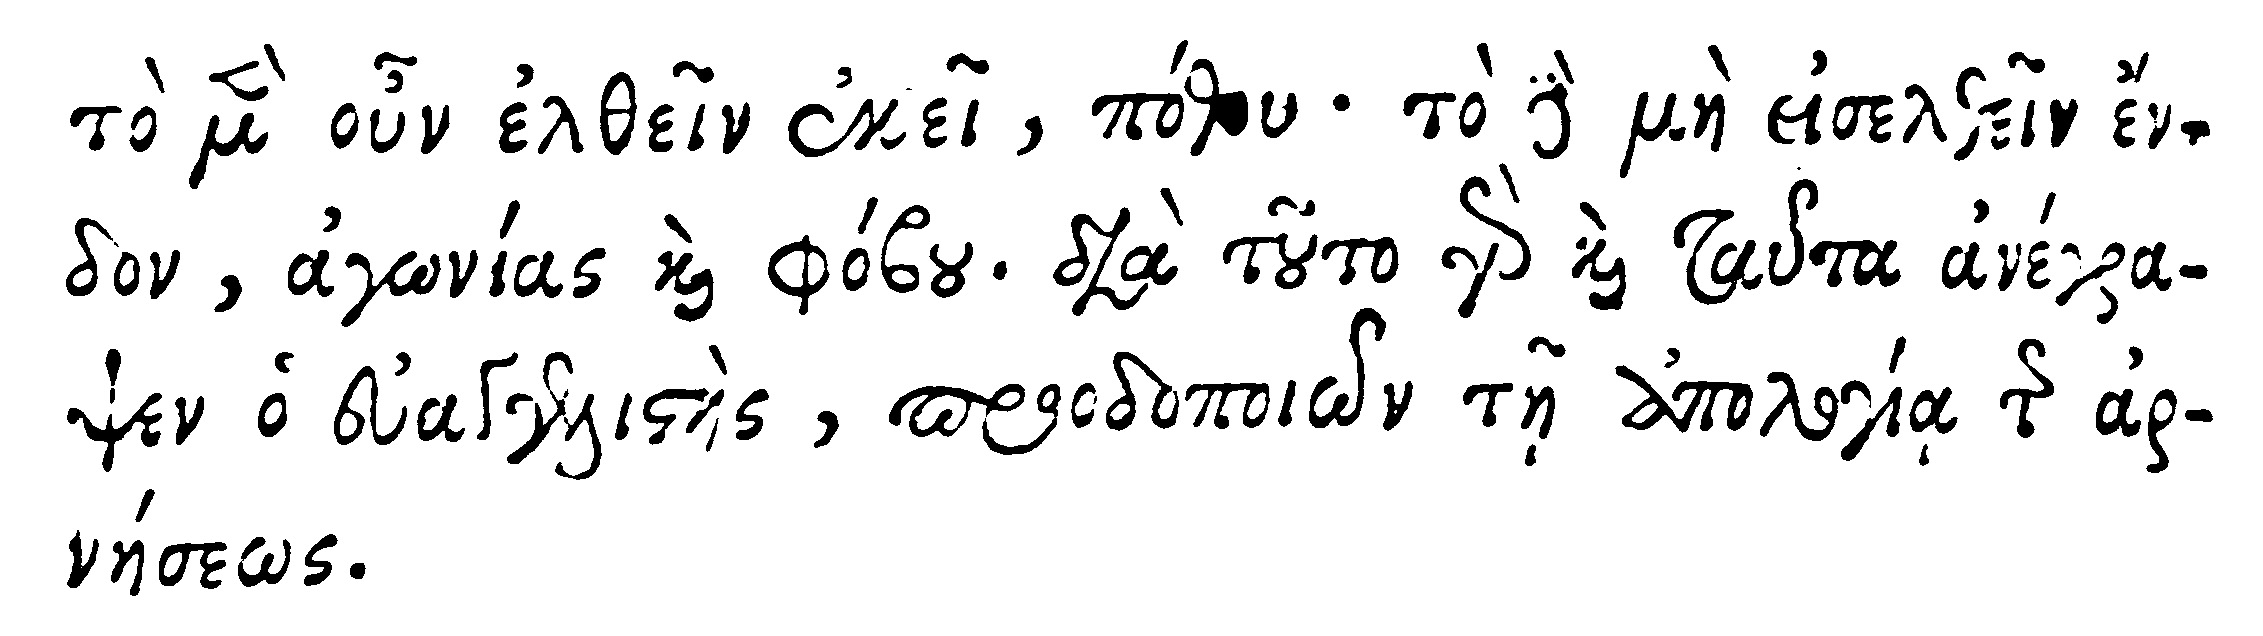 τὸ μὲν οὖν ἐλθεῖν ἐκεῖ, πόθου· τὸ δὲ μὴ εἰσελθεῖν ἔν-
δον, ἀγωνίας καὶ φόβου. διὰ τοῦτο γὰρ καὶ ταῦτα ἀνέγρα-
ψεν ὁ εὐαγγελιστὴς, προοδοποιῶν τῇ ἀπολογίᾳ τῆς ἀρ-
νήσεως.